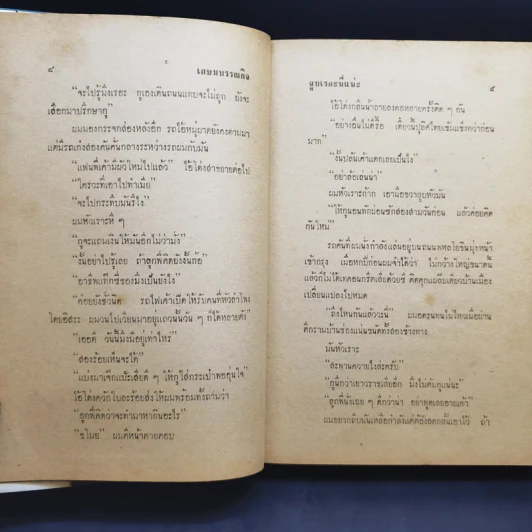 ๔ เกษมบรรณกิจ
"จะไปรู้มึงเรอะ กูเองเดินถนนแทบจะไม่ถูก ยังจะ
เสือกมาปรึกษากู"
ผมมองกระจกส่องหลังอีก รถไอ้หมู่มายังคงตามมา
แต่มีรถเก๋งสองคันคั่นกลางระหว่างรถผมกับมัน
"แฟนพี่เค้ามีผัวใหม่ไปแล้ว" ไอ้โด่งสำรายายต่อไป
"ใครวะที่เอาไปทำเมีย"
"จะไปกระทืบมันรึไง"
ผมหัวเราะหึ ๆ
"กูจะแถมเงินให้มันอีกไม่ว่ามั่ง"
"งั้นอย่าไปรู้เลย ถ้าลูกพี่คิดยังงั้นก้อ"
"อาชีพแท็กซี่ของมึงเป็นยังไง"
"ค่อยยังชั่วนิด รถไฟเค้าเปิดให้รับคนที่หัวลำโพง
โดยอิสระ ผมวนไปเวียนมาอยู่แถวนั้นวัน ๆ ก็ได้หลายตังค์"
"เออดี วันนี้มึงมีอยู่เท่าไหร่"
"สองร้อยเห็นจะได้"
"แบ่งมาเจียกแป๊ะเสียดี ๆ ให้กูใส่กระเป๋าพออุ่นใจ"
ไอ้โด่งควักใบละร้อยส่งให้ผมพร้อมทั้งถามว่า
"ลูกพี่คิดว่าจะทำมาหากินอะไร"
"ขโมย" ผมตีหน้าตายตอบ
จูบเรอะนี่แน่ะ ๕
ไอ้โด่งกลืนน้ำลายลงคอหลายครั้งติด ๆ กัน
"อย่าเอ็นไม่ดีรึอ เดี๋ยวนี้ปุลิศไทยเข้มแข็งกว่าก่อน
มาก"
"งั้นปล้นเค้าแดกเลยเป็นไง"
"อย่าล้อเล่นน่า"
ผมหัวเราะก๊าก เอามือขวาลูบหัวมัน
"ให้กูนอนพักผ่อนซักสองสามวันก่อน แล้วค่อยคิด
กันใหม่"
รถคันที่ผมนั่งกำลังแล่นอยู่บนถนนพหลโยธินมุ่งหน้า
เข้ากรุง เมื่อหกปีก่อนผมจำได้ว่า ไม่กว้างใหญ่ขนาดนี้
แล้วก็ไม่ได้เทคอนกรีตเสียด้วยซี คิดดูคนเดียวบ้านเมือง
เปลี่ยนแปลงไปหมด
"ถึงไหนกันแล้ววะนี่" ผมอดรนทนไม่ไหวเมื่อผ่าน
ตึกรามบ้านช่องแน่นขนัดทั้งสองข้างทาง
มันหัวเราะ
"สะพานควายไงล่ะครับ"
"กูนึกว่าเยาวราชเสียอีก มึงไม่ต้มกูแน่นะ"
"ลูกพี่นั่งเฉย ๆ ดีกว่าน่า อย่าพูดเลยอายเค้า"